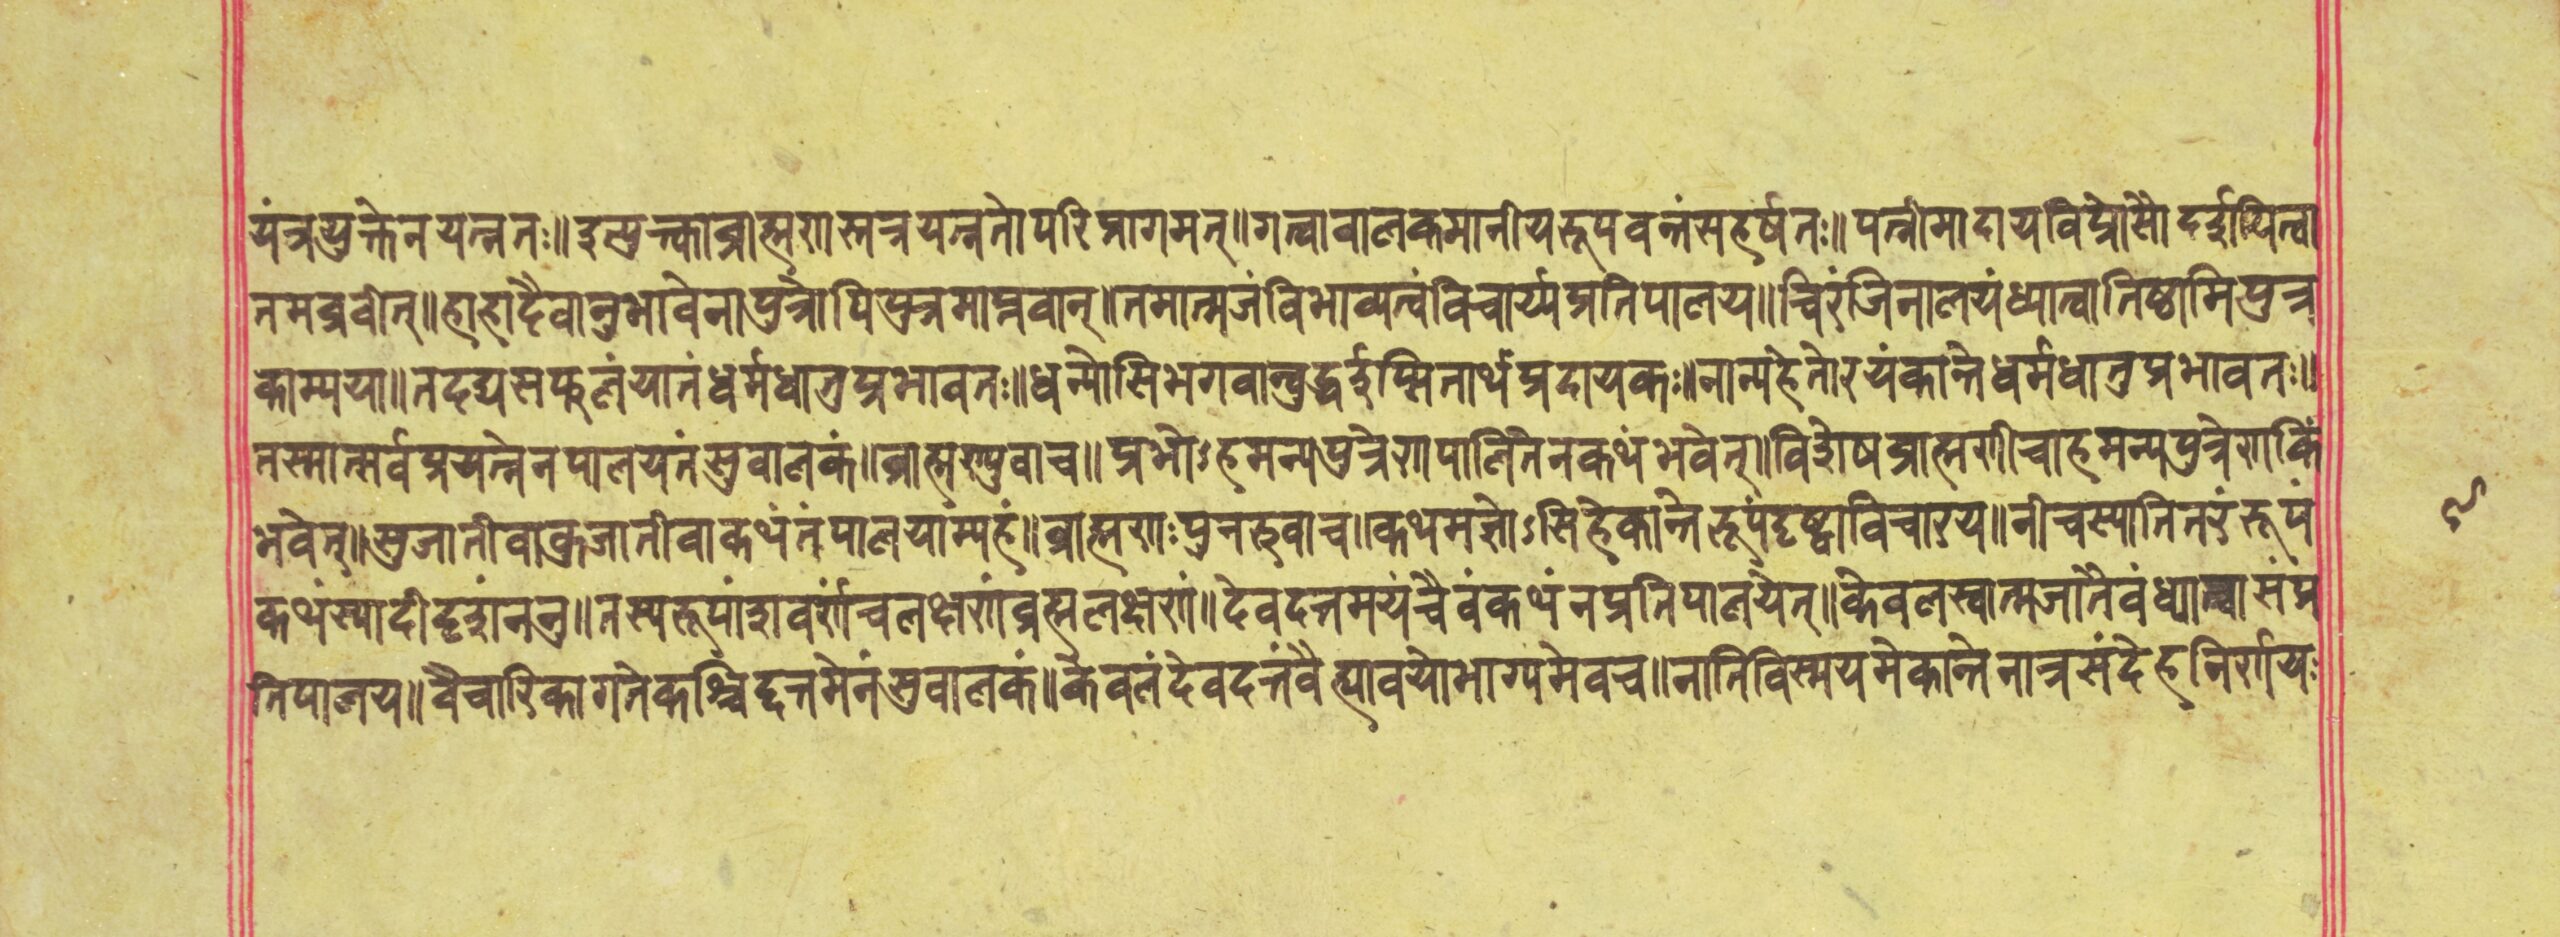 यंत्रयुक्तेनयत्नतः॥इत्युक्त्वाब्राह्मणस्तत्रयत्नतोपरिप्रागमत्॥गत्वाबालकमानीयरूपवन्तंसहर्षतः॥पत्नीमादायविप्रोसौदर्शयित्वा
तमब्रवीत्॥हाहादैवानुभावेनापुत्रोपिपुत्रमाप्नवान्॥तमात्मजंविभाव्यत्वंविचार्य्यप्रतिपालय॥चिरंजिनालयंध्यात्वातिष्ठामिपुत्र
काम्यया॥तदद्यसफुलंयातंधर्मधातुप्रभावतः॥धन्योसिभगवान्बुद्धईप्सितार्थप्रदायकः॥नान्यहेतोरयंकान्तेधर्मधातुप्रभावतः॥
तस्मात्सर्वप्रयत्नेनपालयतंसुबालकं॥ब्राह्मण्युवाच॥प्रभोऽहमन्यपुत्रेणपालितेनकथंभवेत्॥विशेषब्राह्मणीचाहमन्यपुत्रेणकिं
भवेत्॥सुजातीवाकुजातीवाकथंतंपालयाम्यहं॥ब्राह्मणःपुनरुवाच॥कथमज्ञोऽसिहेकान्तेरूपंदृष्ट्वाविचारय॥नीचस्यातितरंरूपं
कथंस्यादीदृशंननु॥तस्यरूपांशवर्णंचलक्षणंब्रह्मलक्षणं॥देवदत्तमयंचैवंकथंनप्रतिपालयेत्॥केवलस्वात्मजातैवंध्यात्वासंप्र
तिपालय॥वैचारिकागतेकश्चिद्दत्तमेनंसुबालकं॥केवलंदेवदत्तंवैह्यावयोभाग्यमेवच॥नातिविस्मयमेकान्तेनात्रसंदेहनिर्णयः
९